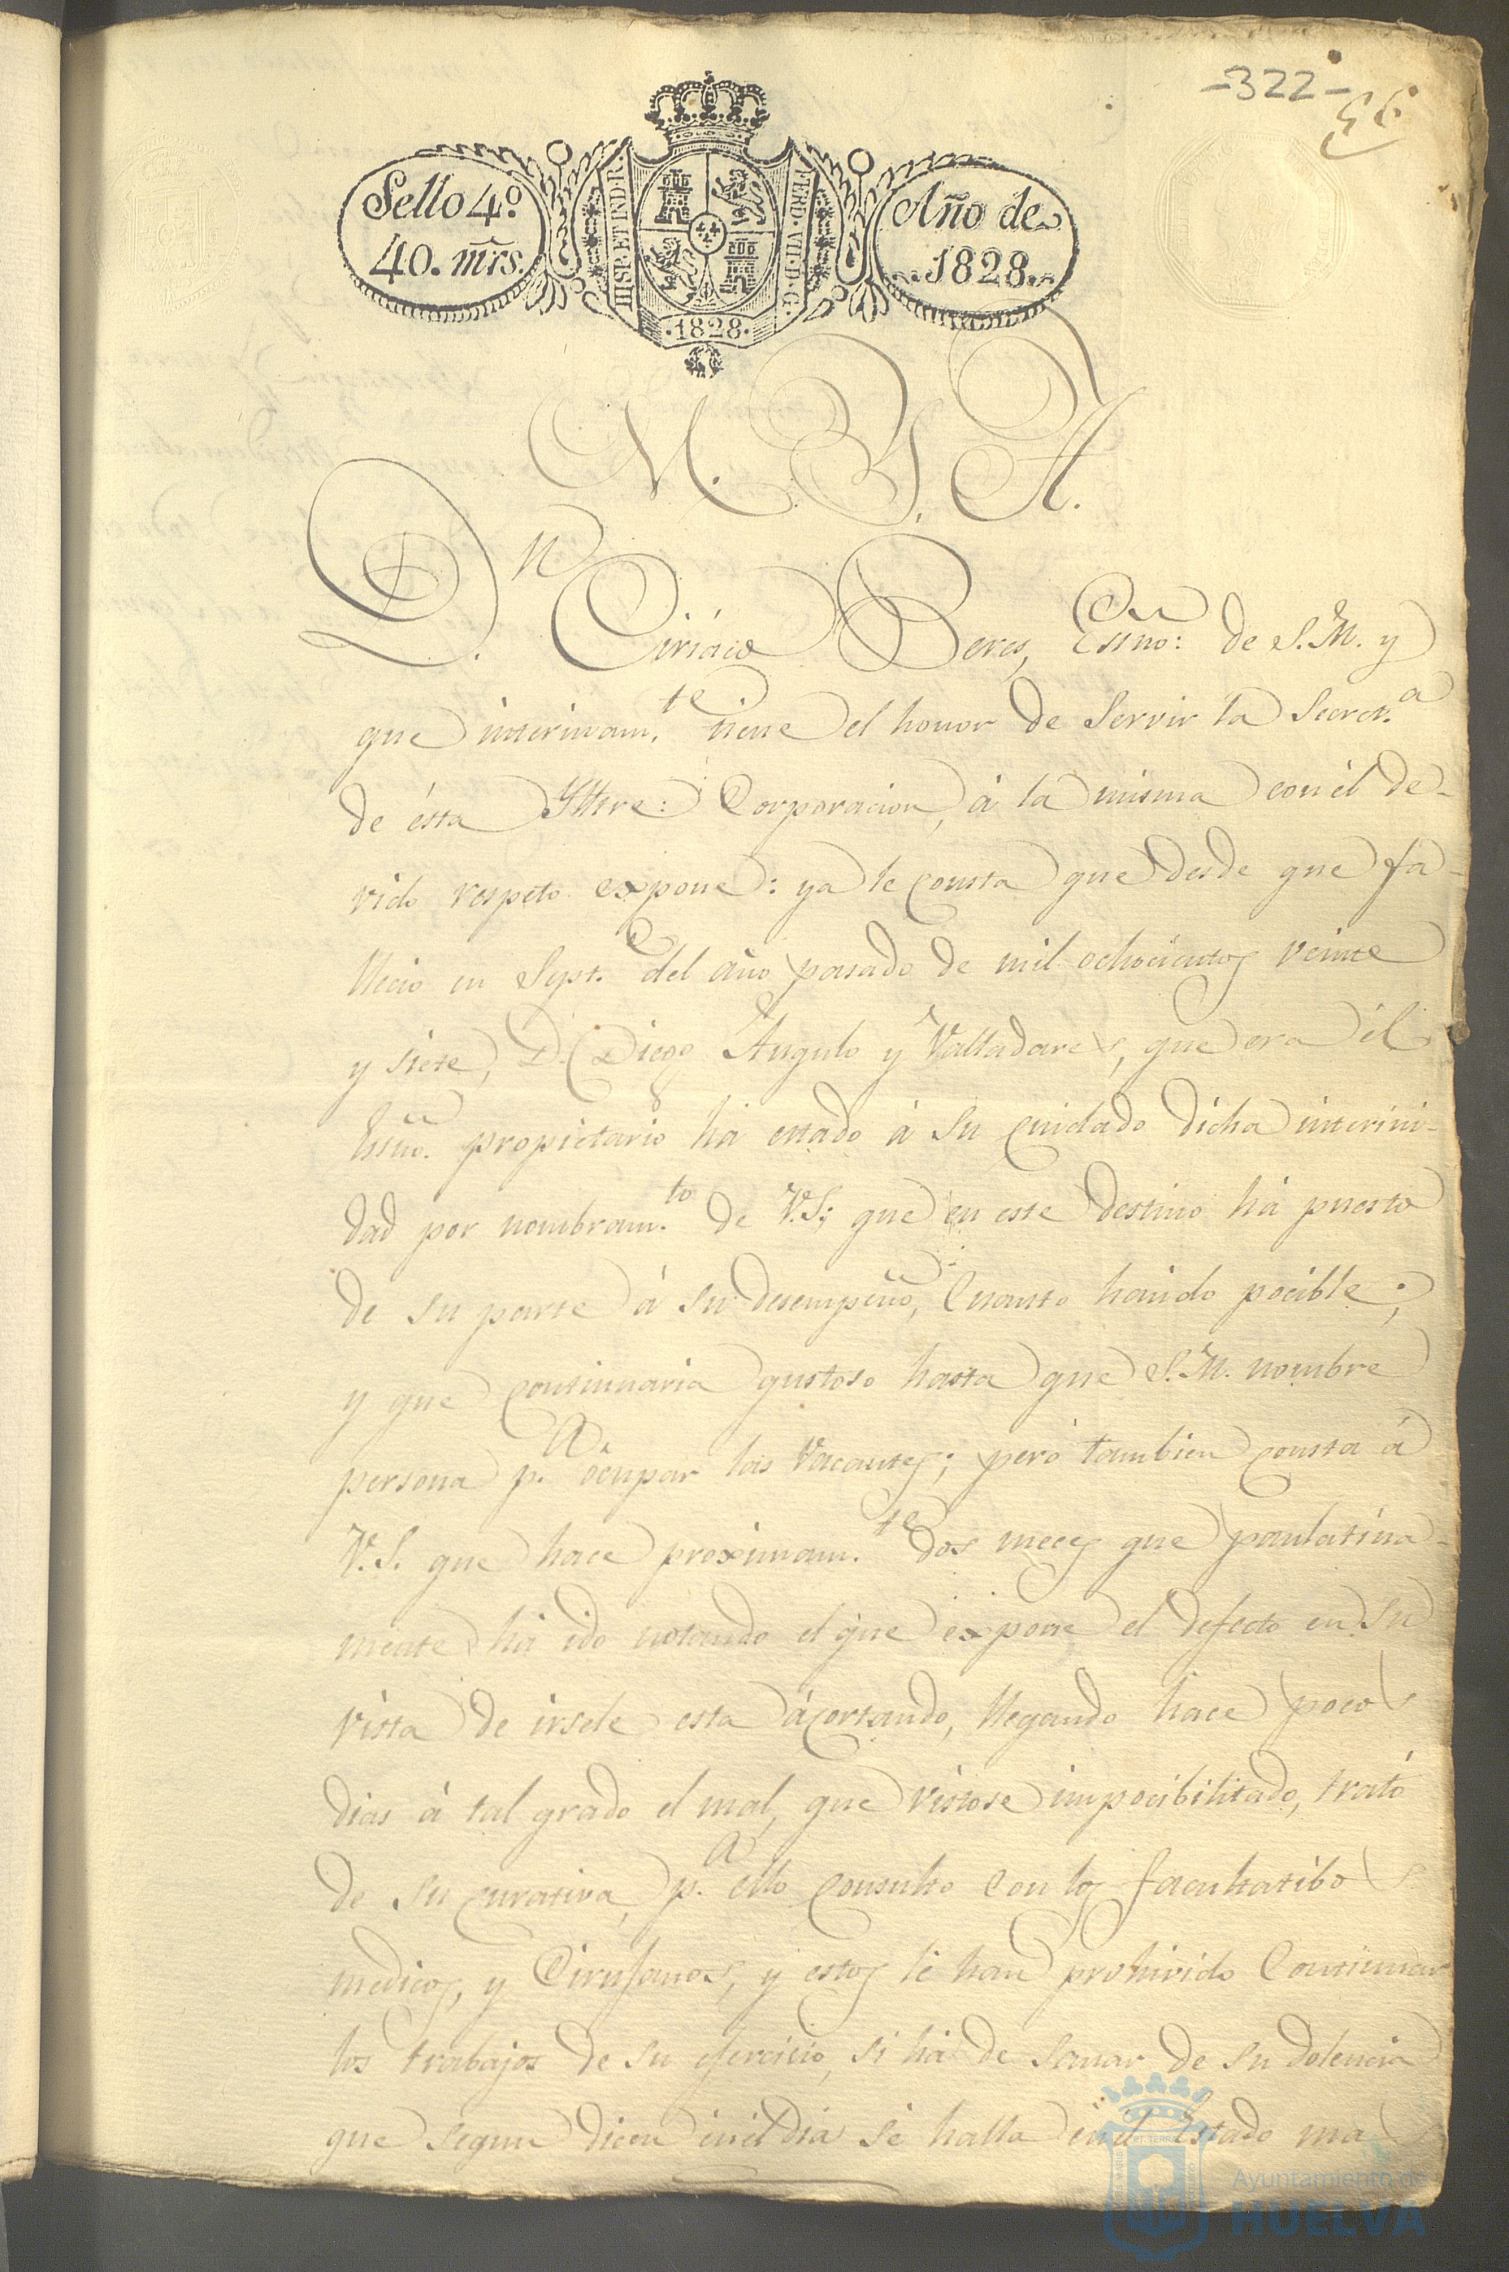 -322-
Sello 4º
40. mrs.
HISP. ET IND. R.
FERD. VII. D. G.
·1828·
Año de
1828.
M. Y. A.
D.n Ciriáco Beres, Essno: de S.M. y
que interinam.te tiene el honor de Servir la Secret.a
de ésta Yltre: Corporacion, á la misma con él de-
vido respeto expone: ya le consta que desde que fa-
llecio en Sept.e del año pasado de mil ochocientos veinte
y siete, D. Diego Ángulo y Valladares, que era él
Essno. propietario há estado á su cuidado dicha interini-
dad por nombram.to de V.S; que en este destino há puesto
de su parte á su desempeño, Cuanto haido pocible;
y que continuaria gustoso hasta que S.M. nombre
persona p.a ócupar las Vacantes; peró tambien consta á
V.S. que hace proximam.te dos meces que paulatina-
mente há ido notando el que éxpone el defecto en su
vista de irsele esta ácortando, llegando hace pocos
dias á tal grado el mal, que vistose impocibilitado, trató
de su curativa, p.a ello consulto con los facultatibos
medicos, y Cirujanos, y estos le han prohivido Continuar
los trabajos de su ejercicio, si há de sanar de su dolencia
que segun dicen en el dia se halla en el Estado ma
Ayuntamiento de
HUELVA